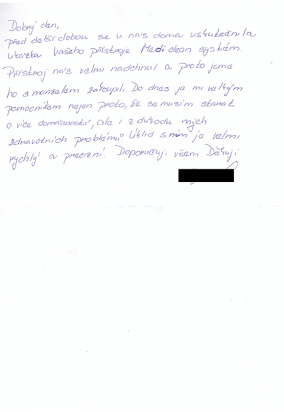 Dobrý den,
před delší dobou se u nás doma uskutečnila
ukázka Vašeho přístroje Medi clean systém.
Přístroj nás velmi nadchnul a proto jsme
ho s manželem zakoupili. Do dnes je mi velkým
pomocníkem nejen proto, že se musím starat
o více domácností, ale i z důvodu mých
zdravotních problémů. Úklid s ním je velmi
rychlý a precizní. Doporučuji všem. Děkuji